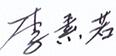 李素若